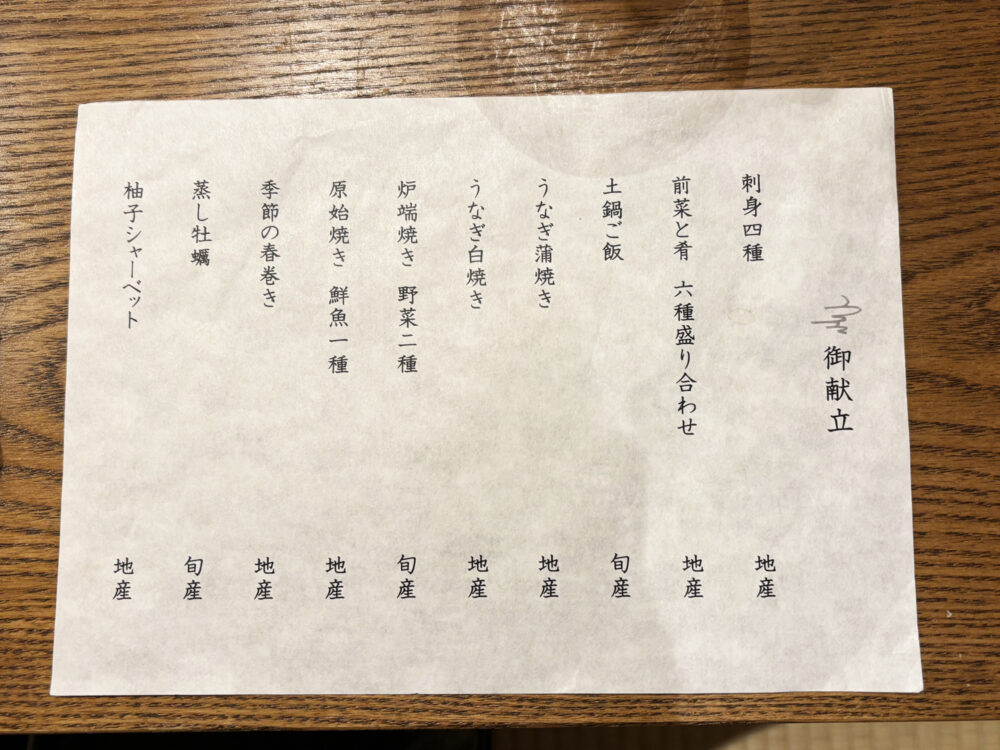 御献立
刺身四種 地産
前菜と肴 六種盛り合わせ 地産
土鍋ご飯 旬産
うなぎ蒲焼き 地産
うなぎ白焼き 地産
炉端焼き 野菜二種 旬産
原始焼き 鮮魚一種 地産
季節の春巻き 地産
蒸し牡蠣 旬産
柚子シャーベット 地産